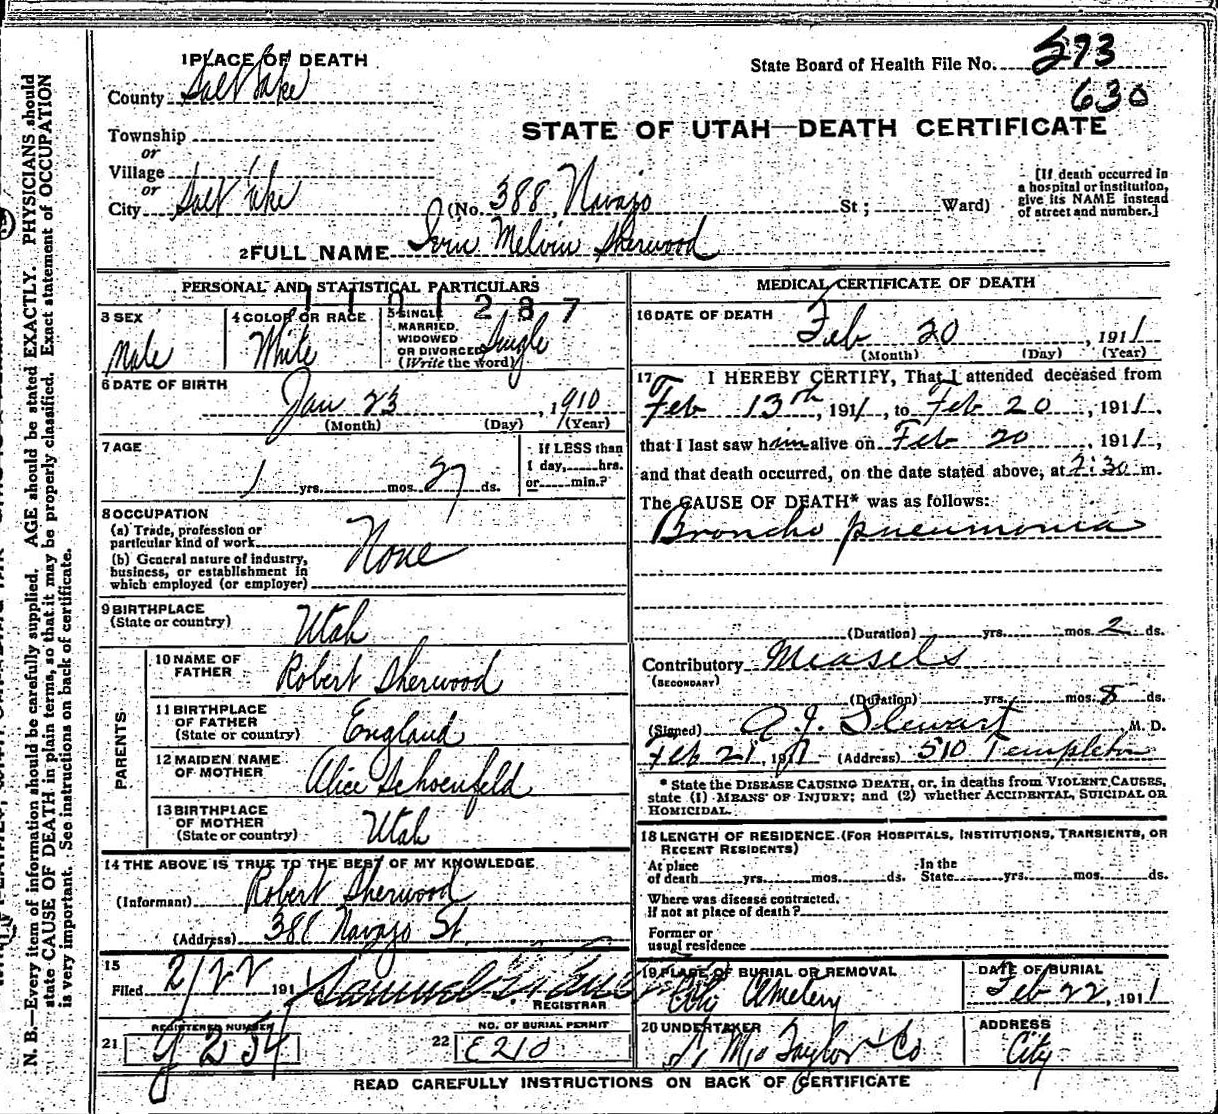 1 PLACE OF DEATH
County Salt Lake
Township
or
Village
or
City Salt Lake (No. 388, Navajo St; Ward)
State Board of Health File No. 293
630
STATE OF UTAH—DEATH CERTIFICATE
[If death occurred in
a hospital or institution,
give its NAME instead
of street and number.]
2 FULL NAME Irvin Melvin Sherwood
PERSONAL AND STATISTICAL PARTICULARS
1101287
3 SEX
Male
4 COLOR OR RACE
White
5 SINGLE
MARRIED,
WIDOWED
OR DIVORCED
(Write the word)
Single
6 DATE OF BIRTH
Jan 23, 1910
(Month) (Day) (Year)
7 AGE
1 yrs. mos. 27 ds.
If LESS than
1 day, hrs.
or min.?
8 OCCUPATION
(a) Trade, profession or
particular kind of work
(b) General nature of industry,
business, or establishment in
which employed (or employer)
None
9 BIRTHPLACE
(State or country)
Utah
PARENTS
10 NAME OF
FATHER
Robert Sherwood
11 BIRTHPLACE
OF FATHER
(State or country)
England
12 MAIDEN NAME
OF MOTHER
Alice Schoenfeld
13 BIRTHPLACE
OF MOTHER
(State or country)
Utah
14 THE ABOVE IS TRUE TO THE BEST OF MY KNOWLEDGE
(Informant) Robert Sherwood
(Address) 388 Navajo St
15
Filed 2/22 191
Samuel G.
REGISTRAR
21 REGISTERED NUMBER
254
22 NO. OF BURIAL PERMIT
E210
MEDICAL CERTIFICATE OF DEATH
16 DATE OF DEATH
Feb 20, 1911
(Month) (Day) (Year)
17 I HEREBY CERTIFY, That I attended deceased from
Feb 13th, 1911, to Feb 20, 1911,
that I last saw him alive on Feb 20, 1911,
and that death occurred, on the date stated above, at 2:30 m.
The CAUSE OF DEATH* was as follows:
Broncho pneumonia
(Duration) yrs. mos. 2 ds.
Contributory Measels
(SECONDARY)
(Duration) yrs. mos. 8 ds.
(Signed) A. J. Stewart M. D.
Feb 21, 1911 (Address) 510 Templeton
* State the DISEASE CAUSING DEATH, or, in deaths from VIOLENT CAUSES,
state (1) MEANS OF INJURY; and (2) whether ACCIDENTAL, SUICIDAL OR
HOMICIDAL.
18 LENGTH OF RESIDENCE (FOR HOSPITALS, INSTITUTIONS, TRANSIENTS, OR
RECENT RESIDENTS)
At place
of death yrs. mos. ds.
In the
State yrs. mos. ds.
Where was disease contracted,
If not at place of death?
Former or
usual residence
19 PLACE OF BURIAL OR REMOVAL
City Cemetery
DATE OF BURIAL
Feb 22, 1911
20 UNDERTAKER
Taylor & Co
ADDRESS
City
READ CAREFULLY INSTRUCTIONS ON BACK OF CERTIFICATE
N. B.—Every item of information should be carefully supplied. AGE should be stated EXACTLY. PHYSICIANS should
state CAUSE OF DEATH in plain terms, so that it may be properly classified. Exact statement of OCCUPATION
is very important. See instructions on back of certificate.